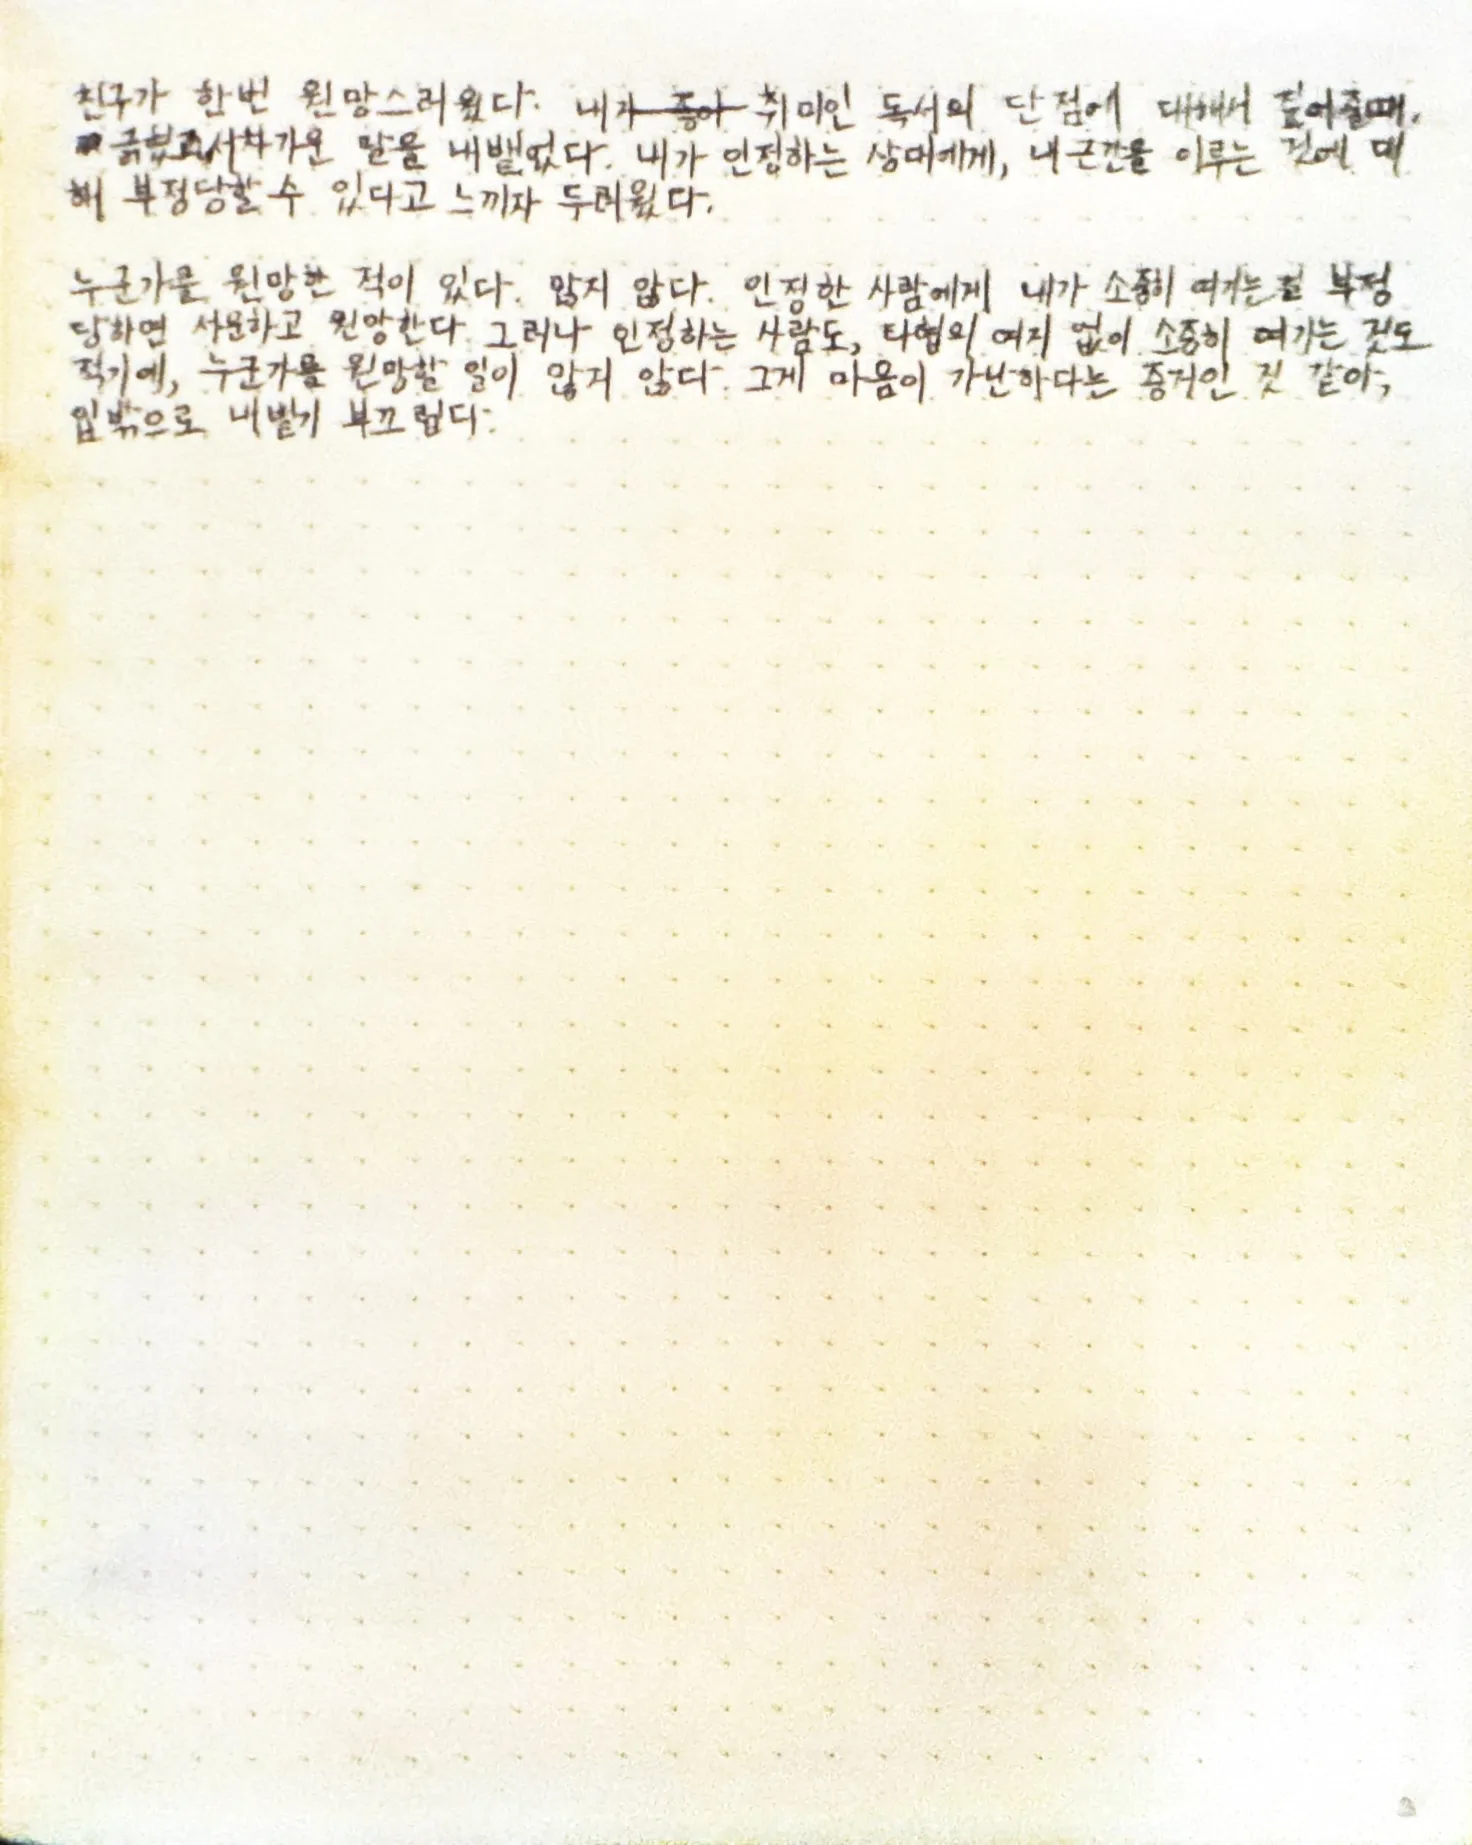 친구가 한번 원망스러웠다. 내가 좋아 취미인 독서의 단점에 대해서 짚어줄때,
차가운 말을 내뱉었다. 내가 인정하는 상대에게, 내 근간을 이루는 것에 대
해 부정당할 수 있다고 느끼자 두려웠다.
누군가를 원망한 적이 있다. 많지 않다. 인정한 사람에게 내가 소중히 여기는 걸 부정
당하면 서운하고 원망한다. 그러나 인정하는 사람도, 타협의 여지 없이 소중히 여기는 것도
적기에, 누군가를 원망할 일이 많지 않다. 그게 마음이 가난하다는 증거인 것 같아,
입밖으로 내뱉기 부끄럽다.